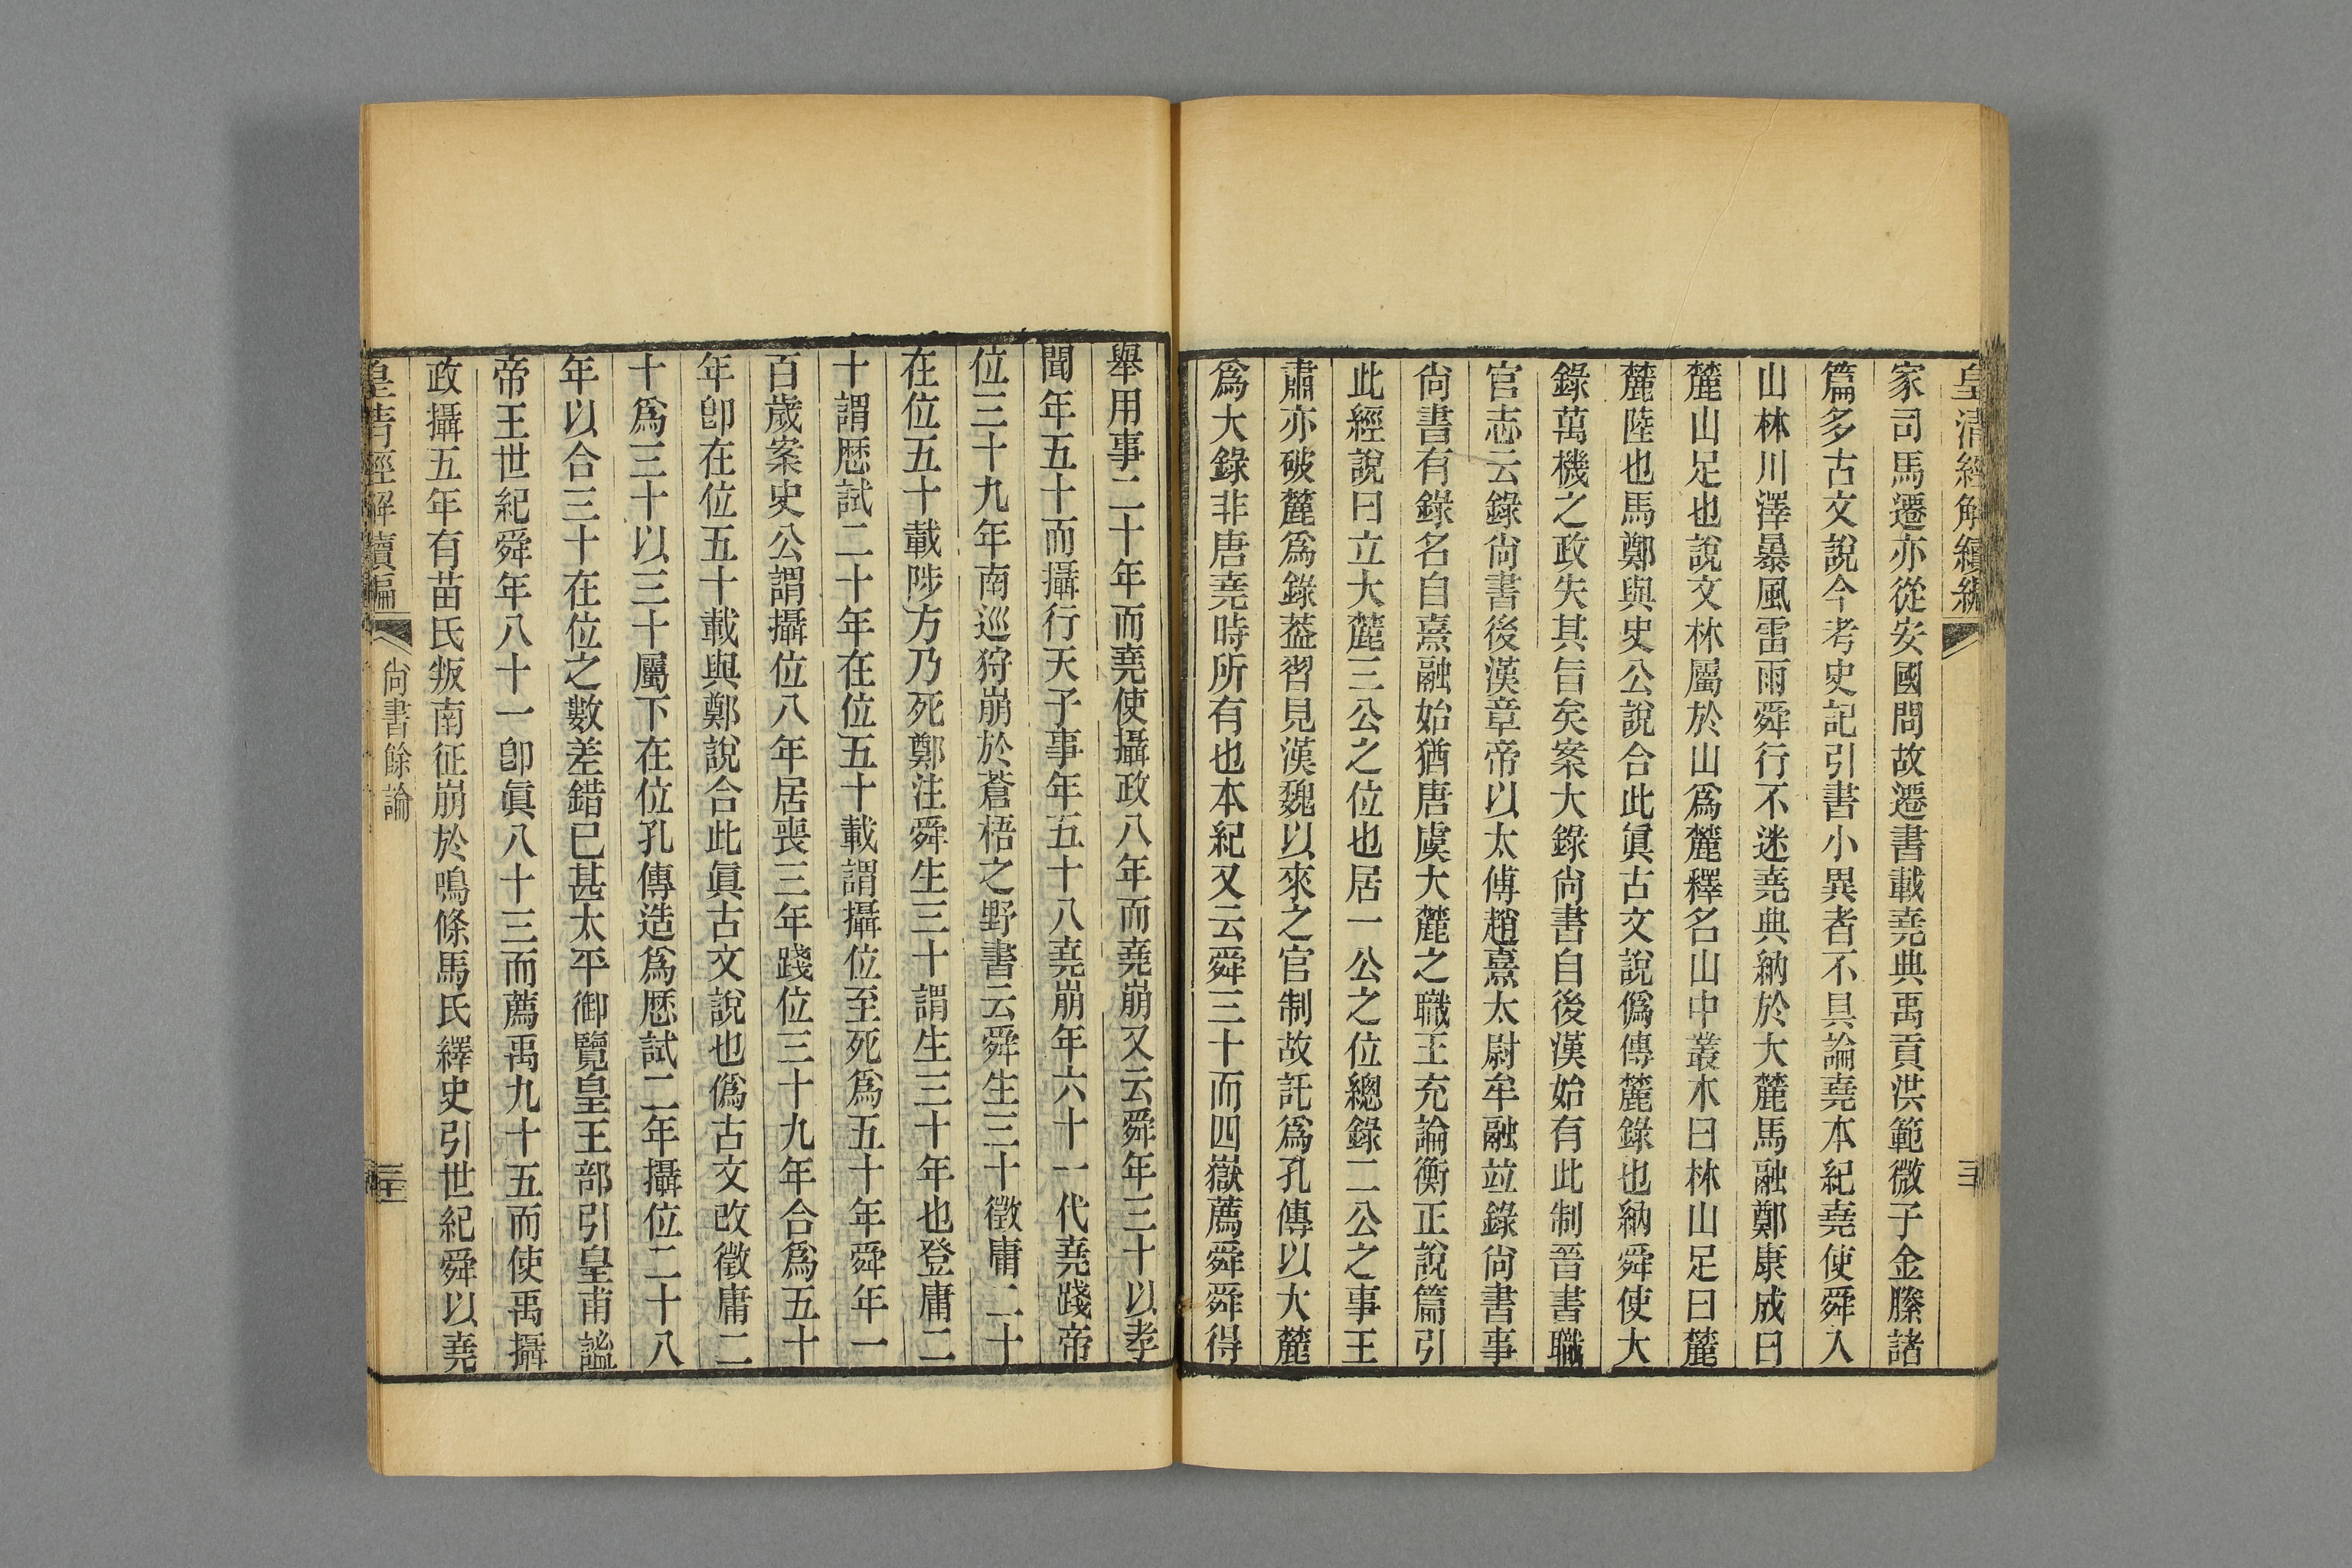 皇清經解續編
家司馬遷亦從安國問故遷書載堯典禹貢洪範微子金縢諸
篇多古文說今考史記引書小異者不具論堯本紀堯使舜入
山林川澤暴風雷雨舜行不迷堯典納於大麓馬融鄭康成曰
麓山足也說文林屬於山爲麓釋名山中叢木曰林山足曰麓
麓陸也馬鄭與史公說合此眞古文說僞傳麓錄也納舜使大
錄萬機之政失其旨矣案大錄尙書自後漢始有此制晉書職
官志云錄尙書後漢章帝以太傅趙熹太尉牟融竝錄尙書事
尙書有錄名自熹融始猶唐虞大麓之職王充論衡正說篇引
此經說曰立大麓三公之位也居一公之位總錄二公之事王
肅亦破麓爲錄葢習見漢魏以來之官制故託爲孔傳以大麓
爲大錄非唐堯時所有也本紀又云舜三十而四嶽薦舜舜得
舉用事二十年而堯使攝政八年而堯崩又云舜年三十以孝
聞年五十而攝行天子事年五十八堯崩年六十一代堯踐帝
位三十九年南巡狩崩於蒼梧之野書云舜生三十徵庸二十
在位五十載陟方乃死鄭注舜生三十謂生三十年也登庸二
十謂歷試二十年在位五十載謂攝位至死爲五十年舜年一
百歲案史公謂攝位八年居喪三年踐位三十九年合爲五十
年卽在位五十載與鄭說合此眞古文說也僞古文改徵庸二
十爲三十以三十屬下在位孔傳造爲歷試二年攝位二十八
年以合三十在位之數差錯已甚太平御覽皇王部引皇甫謐
帝王世紀舜年八十一卽眞八十三而薦禹九十五而使禹攝
政攝五年有苗氏叛南征崩於鳴條馬氏繹史引世紀舜以堯
皇清經解續編
尙書餘論